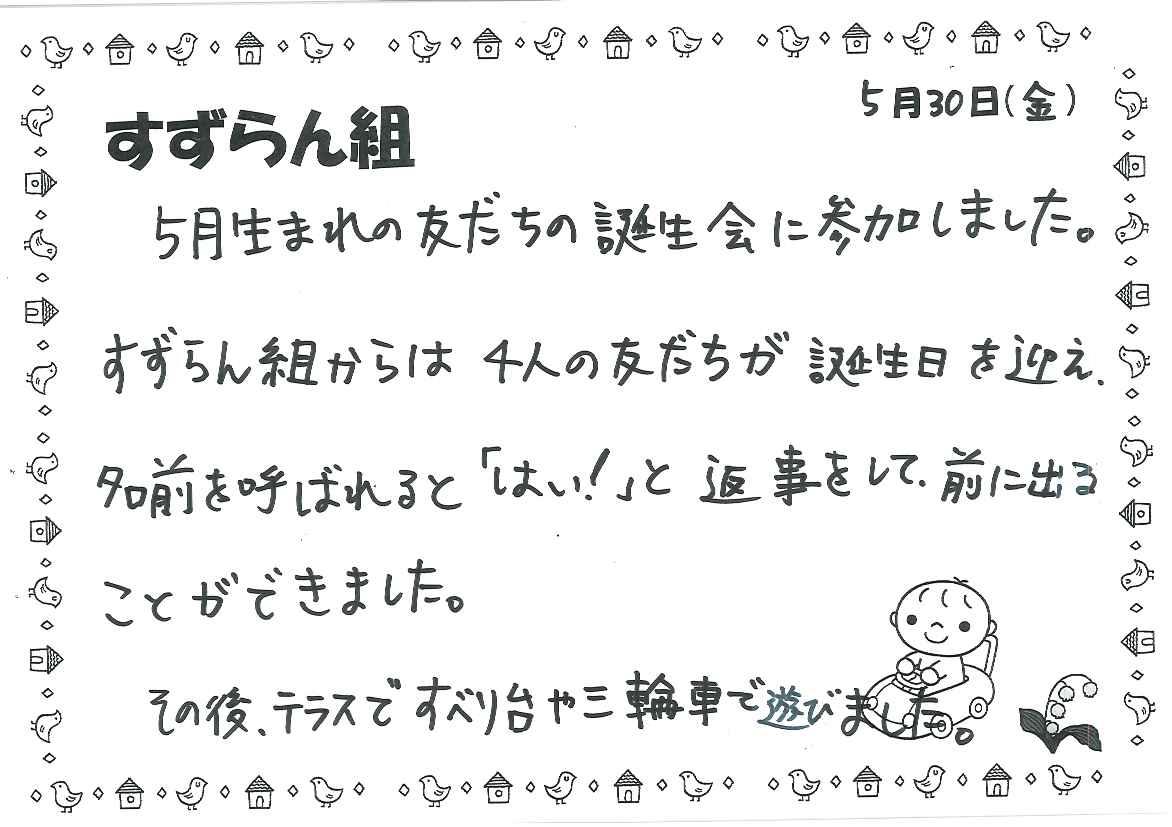 5月30日(金)
すずらん組
5月生まれの友だちの誕生会に参加しました。
すずらん組からは4人の友だちが誕生日を迎え、
名前を呼ばれると「はい!」と返事をして、前に出る
ことができました。
その後、テラスですべり台や三輪車で遊びました。